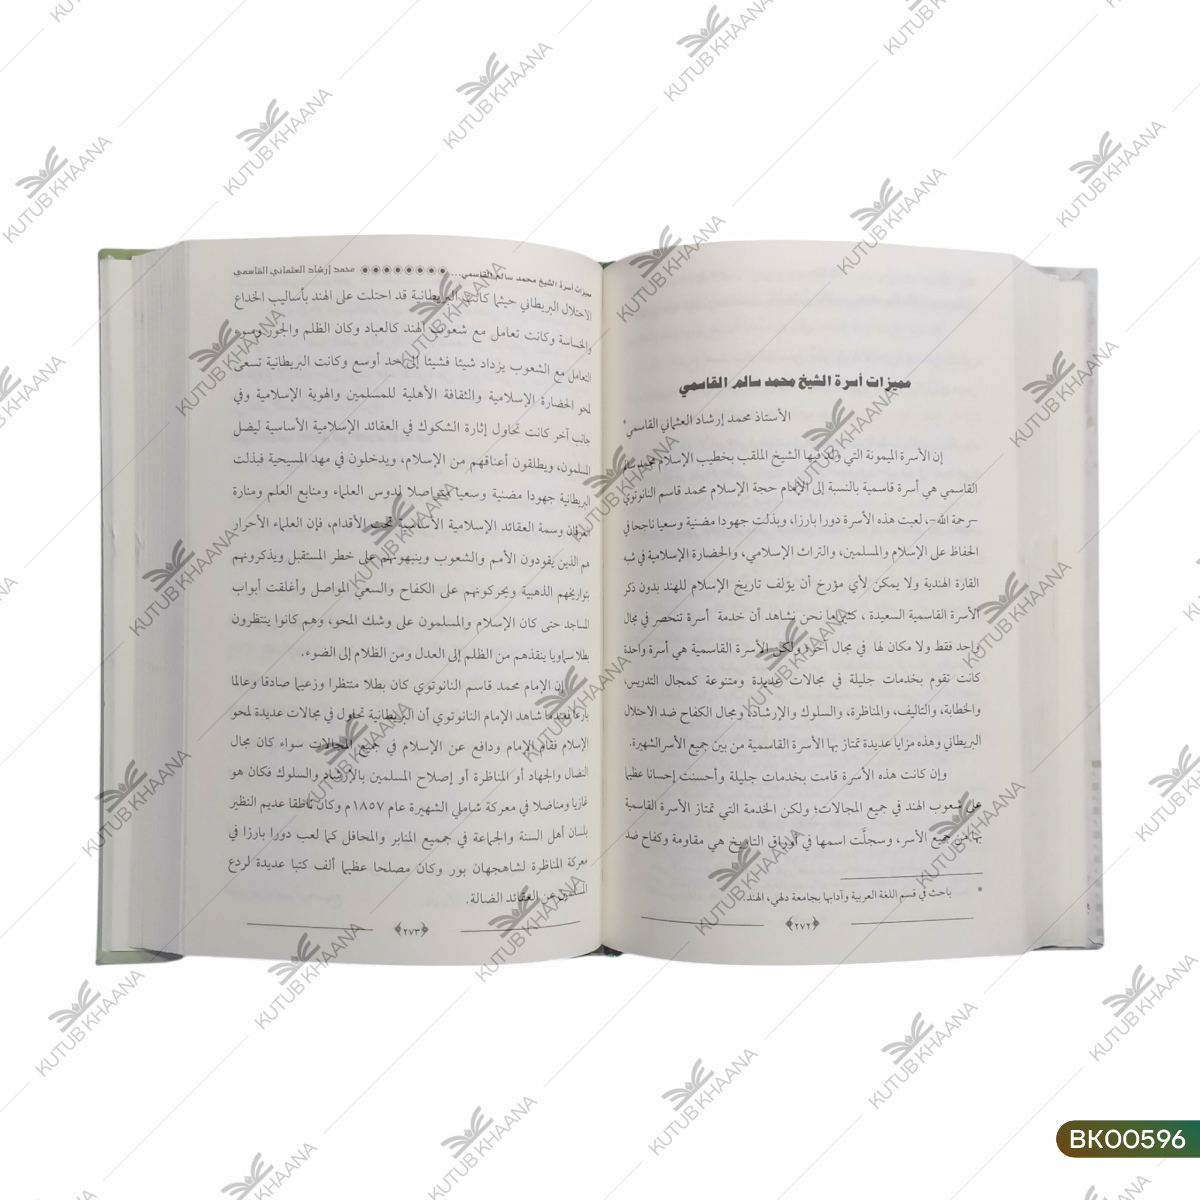 مميزات أسرة الشيخ محمد سالم القاسمي
الأستاذ محمد إرشاد العثماني القاسمي*
إن الأسرة الميمونة التي ولد فيها الشيخ الملقب بخطيب الإسلام محمد سالم
القاسمي هي أسرة قاسمية بالنسبة إلى الإمام حجة الإسلام محمد قاسم النانوتوي
-رحمة الله-، لعبت هذه الأسرة دورا بارزا، وبذلت جهودا مضنية وسعيا ناجحا في
الحفاظ على الإسلام والمسلمين، والتراث الإسلامي، والحضارة الإسلامية في شبه
القارة الهندية ولا يمكن لأي مؤرخ أن يؤلف تاريخ الإسلام للهند بدون ذكر
الأسرة القاسمية السعيدة ، كثيراما نحن نشاهد أن خدمة أسرة تنحصر في مجال
واحد فقط ولا مكان لها في مجال آخر، ولكن الأسرة القاسمية هي أسرة واحدة
كانت تقوم بخدمات جليلة في مجالات عديدة ومتنوعة كمجال التدريس،
والخطابة، والتاليف، والمناظرة، والسلوك والإرشاد، ومجال الكفاح ضد الاحتلال
البريطاني وهذه مزايا عديدة تمتاز بها الأسرة القاسمية من بين جميع الأسر الشهيرة.
وإن كانت هذه الأسرة قامت بخدمات جليلة وأحسنت إحسانا عظيما
على شعوب الهند في جميع المجالات؛ ولكن الخدمة التي تمتاز الأسرة القاسمية
بها من جميع الأسر، وسجلَّت اسمها في أوراق التاريخ هي مقاومة وكفاح ضد
* باحث في قسم اللغة العربية وآدابها بجامعة دلهي، الهند.
﴿٢٧٢﴾
مميزات أسرة الشيخ محمد سالم القاسمي... محمد إرشاد العثماني القاسمي
الاحتلال البريطاني حيثما كانت البريطانية قد احتلت على الهند بأساليب الخداع
والخساسة وكانت تعامل مع شعوب الهند كالعباد وكان الظلم والجور وسوء
التعامل مع الشعوب يزداد شيئا فشيئا إلى حد أوسع وكانت البريطانية تسعى
لمحو الحضارة الإسلامية والثقافة الأهلية للمسلمين والهوية الإسلامية وفي
جانب آخر كانت تحاول إثارة الشكوك في العقائد الإسلامية الأساسية ليضل
المسلمون، ويطلقون أعناقهم من الإسلام، ويدخلون في مهد المسيحية فبذلت
البريطانية جهودا مضنية وسعيا متواصلا لدوس العلماء ومنابع العلم ومنارة
العرفان وسمة العقائد الإسلامية الأساسية تحت الأقدام، فإن العلماء الأحرار
هم الذين يقودون الأمم والشعوب وينبهونهم على خطر المستقبل ويذكرونهم
بتواريخهم الذهبية ويحركونهم على الكفاح والسعي المواصل وأغلقت أبواب
المساجد حتى كان الإسلام والمسلمون على وشك المحو، وهم كانوا ينتظرون
بطلا سماويا ينقذهم من الظلم إلى العدل ومن الظلام إلى الضوء.
إن الإمام محمد قاسم النانوتوي كان بطلا منتظرا وزعيما صادقا وعالما
بارعا فعندما شاهد الإمام النانوتوي أن البريطانية تحاول في مجالات عديدة لمحو
الإسلام فقام الإمام ودافع عن الإسلام في جميع المجالات سواء كان مجال
النضال والجهاد أو المناظرة أو إصلاح المسلمين بالإرشاد والسلوك فكان هو
غازيا ومناضلا في معركة شاملي الشهيرة عام ١٨٥٧م وكان ناطقا عديم النظير
بلسان أهل السنة والجماعة في جمميع المنابر والمحافل كما لعب دورا بارزا في
معركة المناظرة لشاهجهان بور وكان مصلحا عظيما ألف كتبا عديدة لردع
المسلمين عن العقائد الضالة.
﴿٢٧٣﴾
KUTUB KHAANA
BK00596